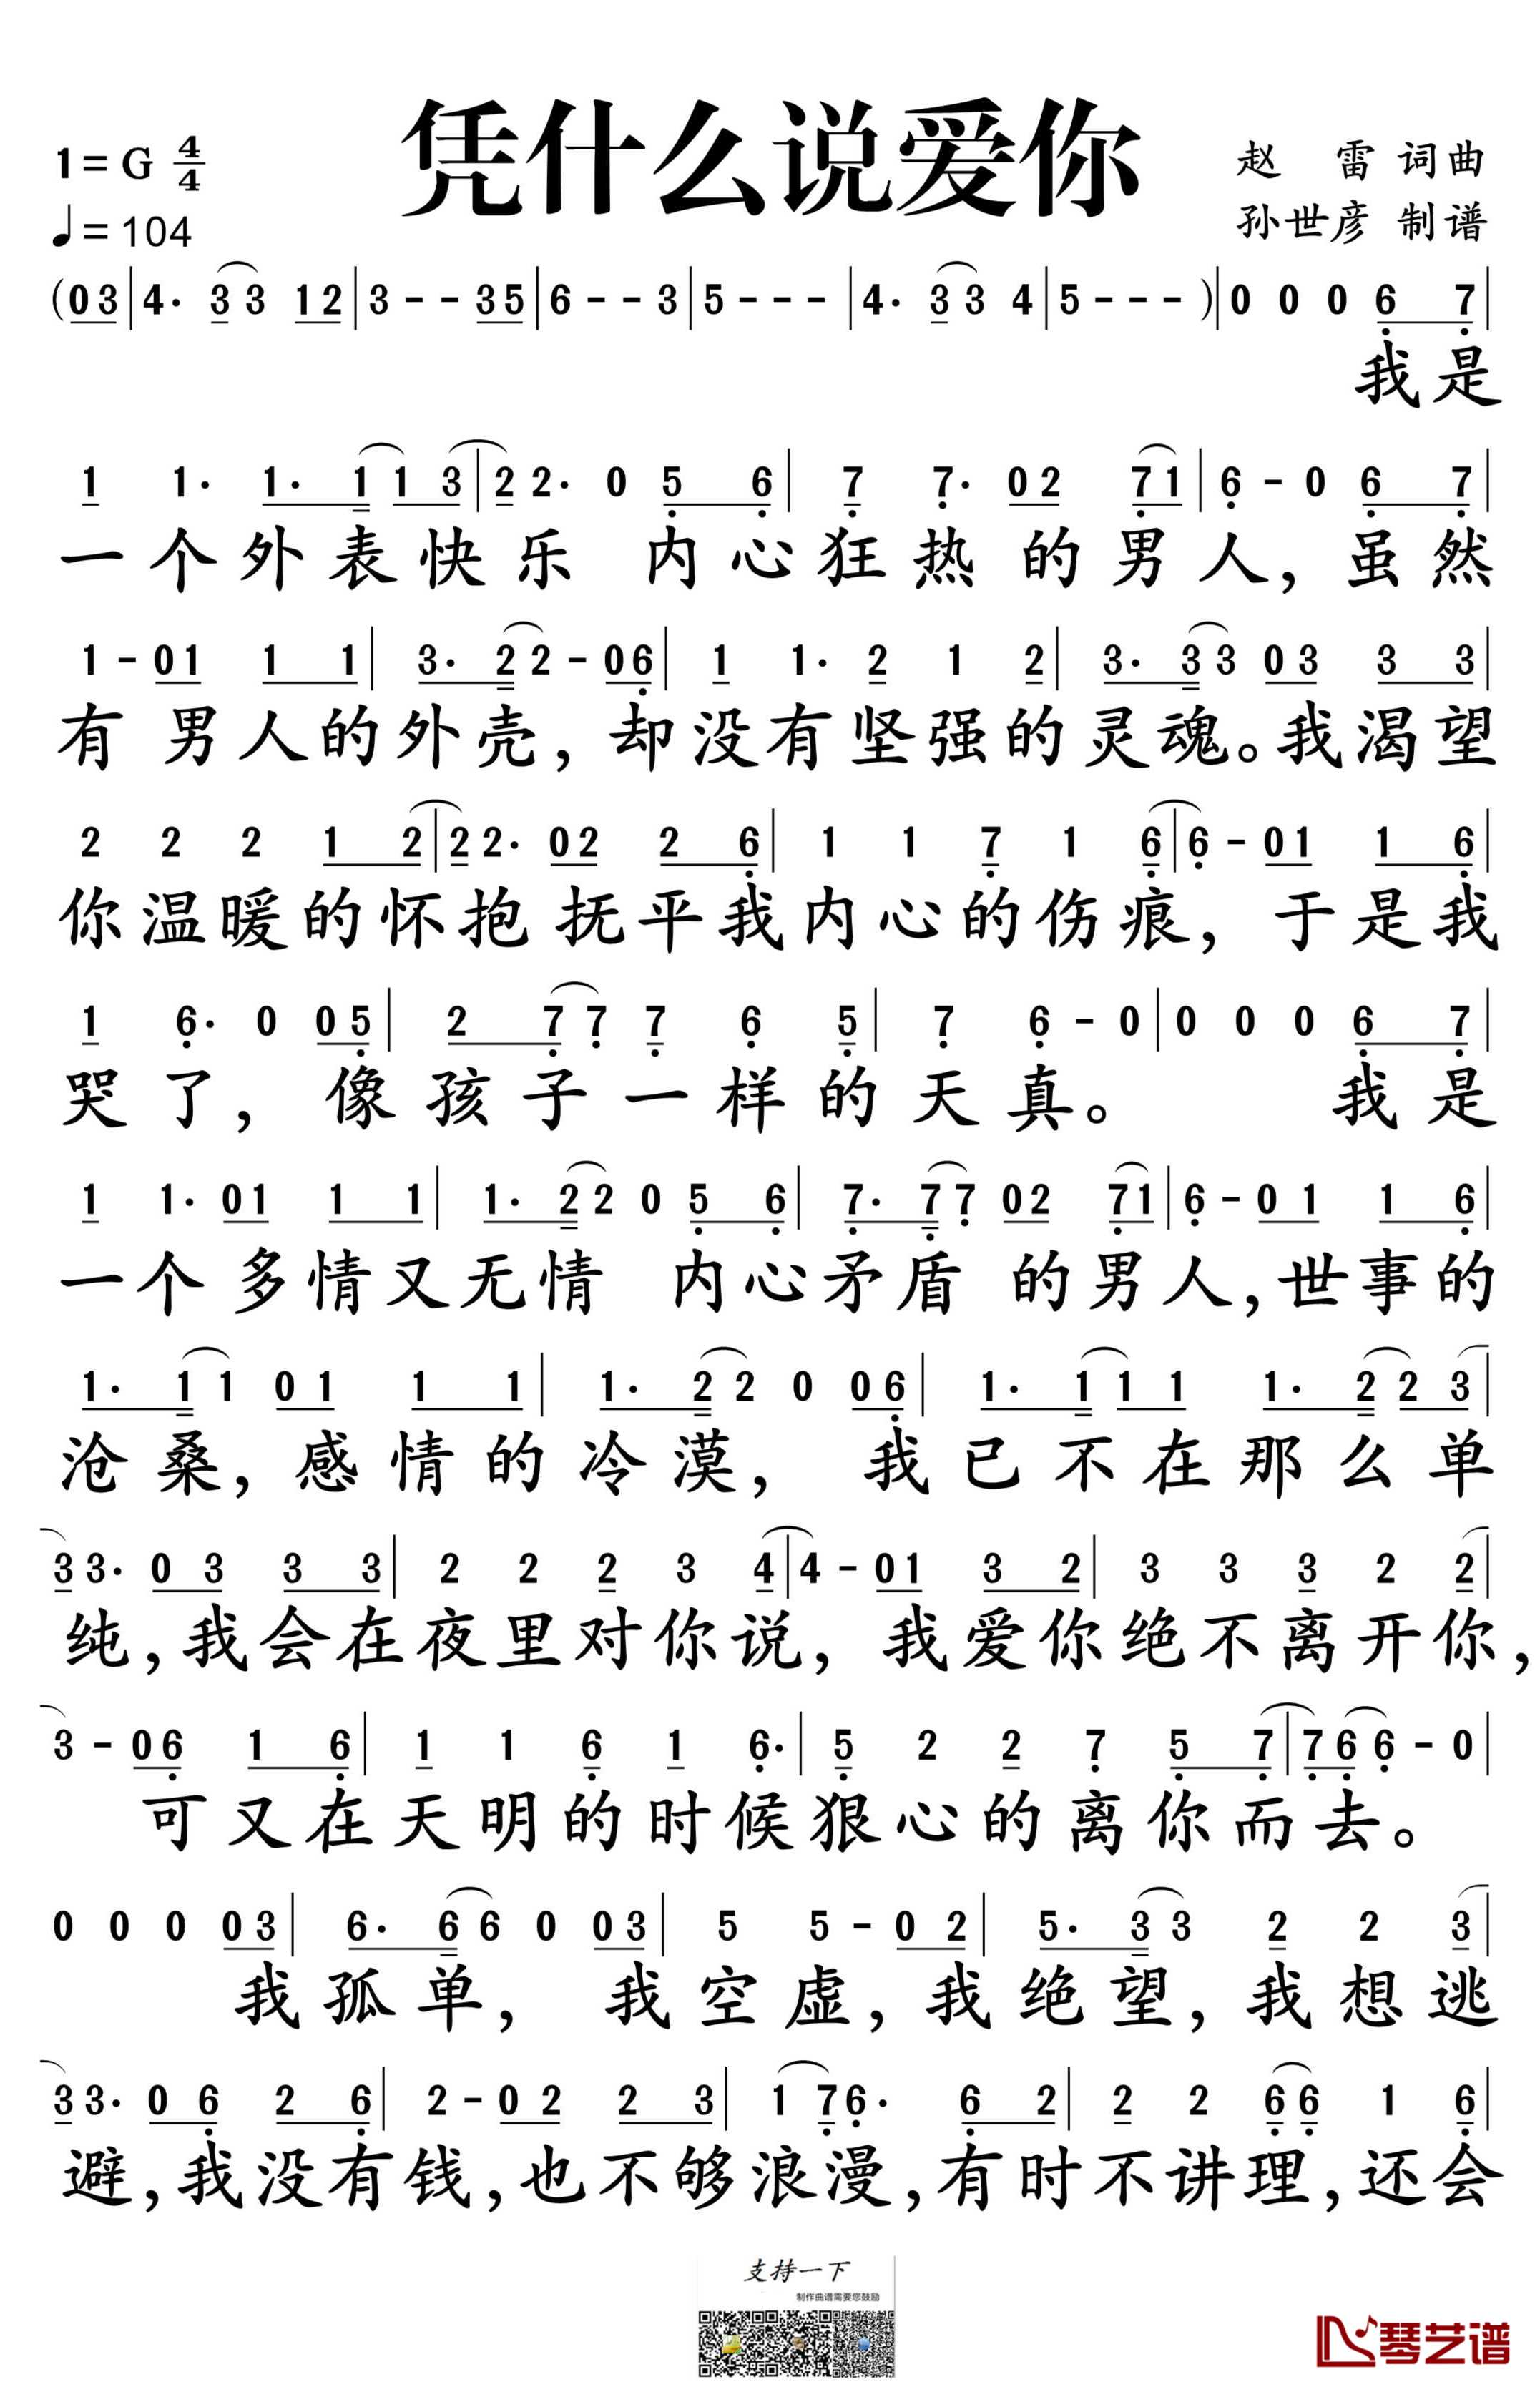 凭什么说爱你
1=G 4/4
赵 雷 词曲
♩=104
孙世彦 制谱
(03|4· 33 12|3--35|6--3|5---|4· 33 4|5---)|0 0 0 6 7|
我是
1 1· 1· 1 1 3|2 2· 0 5 6|7 7· 02 71|6-0 6 7|
一个外表快乐 内心狂热 的男人,虽然
1-01 1 1|3· 22-06|1 1· 2 1 2|3· 33 03 3 3|
有 男人的外壳,却没有坚强的灵魂。我渴望
2 2 2 1 2|2 2· 02 2 6|1 1 7 1 6|6-01 1 6|
你温暖的怀抱 抚平我内心的伤痕, 于是我
1 6· 0 05|2 7 7 7 6 5|7 6-0|0 0 0 6 7|
哭了, 像孩子一样的天真。 我是
1 1· 01 1 1|1· 22 0 5 6|7· 77 02 71|6-01 1 6|
一个多情又无情 内心矛盾 的男人,世事的
1· 11 01 1 1|1· 22 0 06|1· 11 1 1· 22 3|
沧桑,感情的冷漠, 我已不在那么单
3 3· 03 3 3|2 2 2 3 4|4-01 3 2|3 3 3 2 2|
纯,我会在夜里对你说, 我爱你绝不离开你,
3-06 1 6|1 1 6 1 6·|5 2 2 7 5 7|766-0|
可又在天明的时候狠心的离你而去。
0 0 0 03|6· 66 0 03|5 5-02|5· 33 2 2 3|
我孤单, 我空虚,我绝望,我想逃
3 3· 06 2 6|2-02 2 3|1 76· 6 2|2 2 66 1 6|
避,我没有钱,也不够浪漫,有时不讲理,还会
支持一下
制作曲谱需要您鼓励
琴艺谱